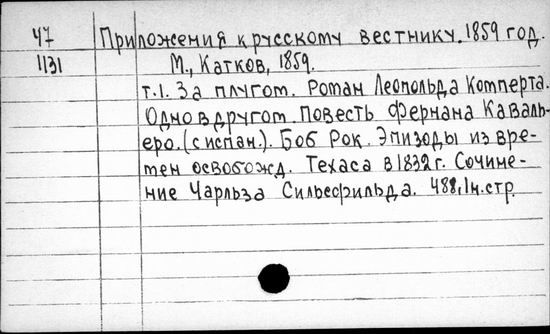 47 Приложения к русскому вестнику. 1859 год.
1131 М., Катков, 1859.
т.1. За плугом. Роман Леопольда Комперта.
Одно в другом. Повесть Фернана Каваль-
еро. (с испан.). Боб Рок. Эпизоды из вре-
мен освобожд. Техаса в 1832 г. Сочине-
ние Чарльза Сильсфильда. 488, 1н. стр.